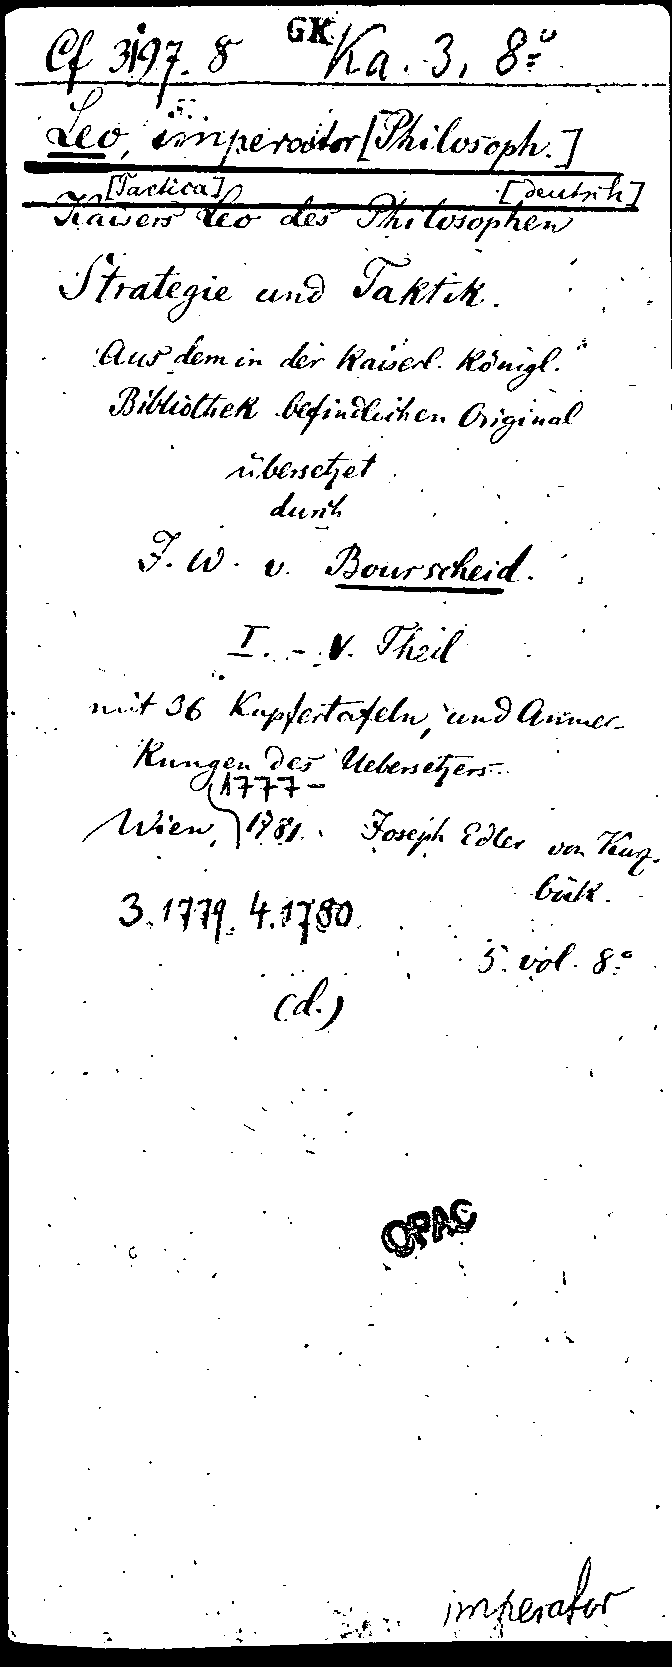 Cf 3197. 8 GK Ka. 3, 8º
Leo, imperator [Philosoph.]
[Tactica] [deutsch]
Kaisers Leo des Philosophen
Strategie und Taktik.
Aus dem in der Kaiserl. Königl.
Bibliothek befindlichen Original
übersetzet
durch
J. W. v. Bourscheid.
I. - V. Theil
mit 36 Kupfertafeln, und Anmer-
kungen des Uebersetzers.
1777-
Wien, 1781. Joseph Edler von Kurz-
bük.
3.1779. 4.1780.
5. vol. 8º
(d.)
OPAC
imperator